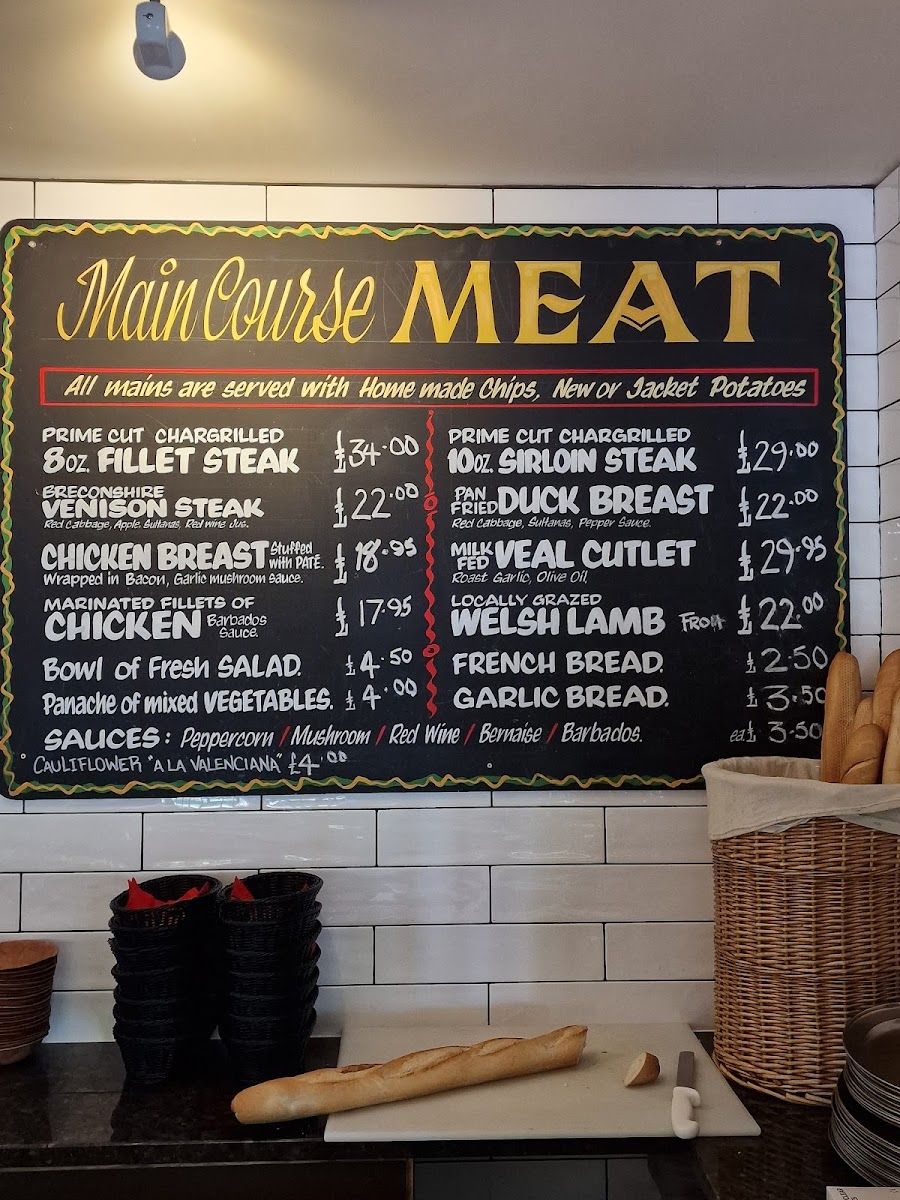 Main Course MEAT
All mains are served with Home made Chips, New or Jacket Potatoes
PRIME CUT CHARGRILLED
8oz. FILLET STEAK £34.00
BRECONSHIRE
VENISON STEAK £22.00
Red Cabbage, Apple, Sultanas, Red wine Jus.
CHICKEN BREAST Stuffed with PATÉ. £18.95
Wrapped in Bacon, Garlic mushroom sauce.
MARINATED FILLETS OF
CHICKEN Barbados Sauce. £17.95
Bowl of Fresh SALAD. £4.50
Panache of mixed VEGETABLES. £4.00
PRIME CUT CHARGRILLED
10oz. SIRLOIN STEAK £29.00
PAN FRIED DUCK BREAST £22.00
Red Cabbage, Sultanas, Pepper Sauce.
MILK FED VEAL CUTLET £29.95
Roast Garlic, Olive Oil,
LOCALLY GRAZED
WELSH LAMB From £22.00
FRENCH BREAD. £2.50
GARLIC BREAD. £3.50
SAUCES: Peppercorn / Mushroom / Red Wine / Bernaise / Barbados. ea £3.50
CAULIFLOWER "A LA VALENCIANA" £4.00